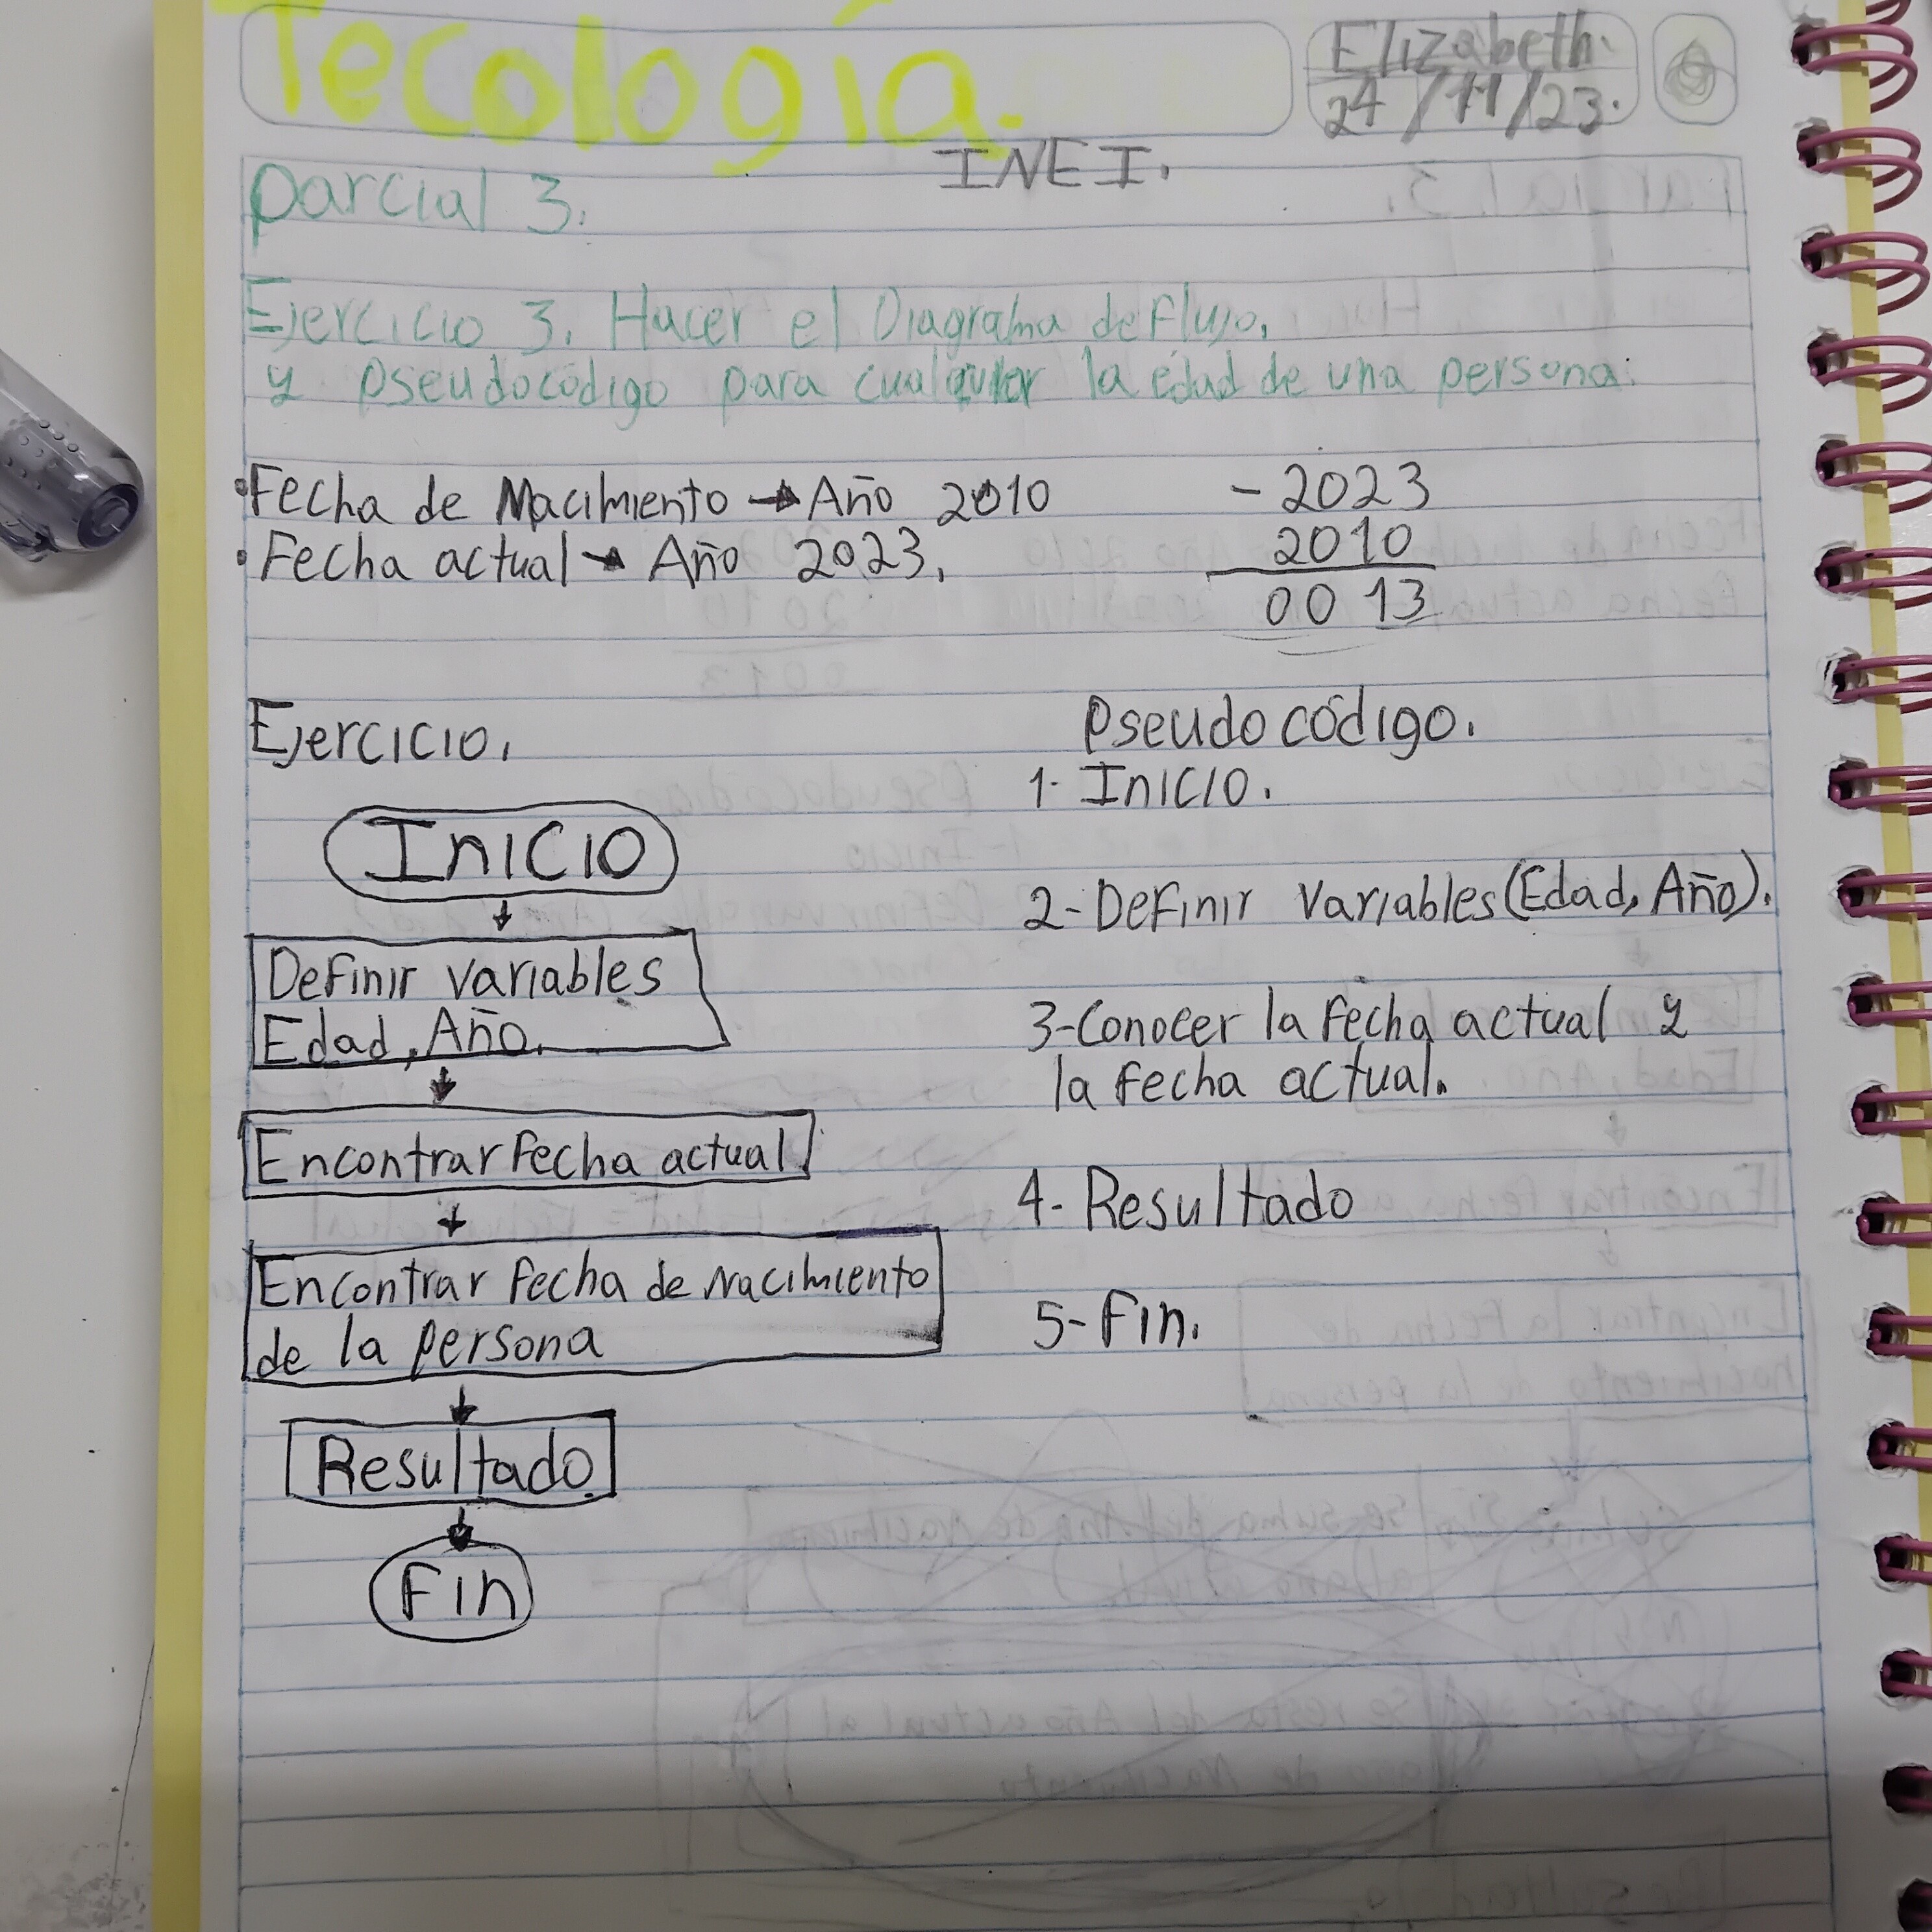 Tecología.
Elizabeth.
24/11/23.
INEI.
Parcial 3.
Ejercicio 3. Hacer el Diagrama de Flujo,
y pseudocódigo para cualquier la edad de una persona.
•Fecha de Nacimiento → Año 2010
•Fecha actual → Año 2023.
- 2023
2010
0013
Ejercicio.
Inicio
Definir variables
Edad, Año.
Encontrar Fecha actual.
Encontrar Fecha de Nacimiento
de la persona
Resultado.
Fin
Pseudo código.
1- Inicio.
2-Definir Variables (Edad, Año).
3-Conocer la Fecha actual y
la fecha actual.
4- Resultado
5-Fin.